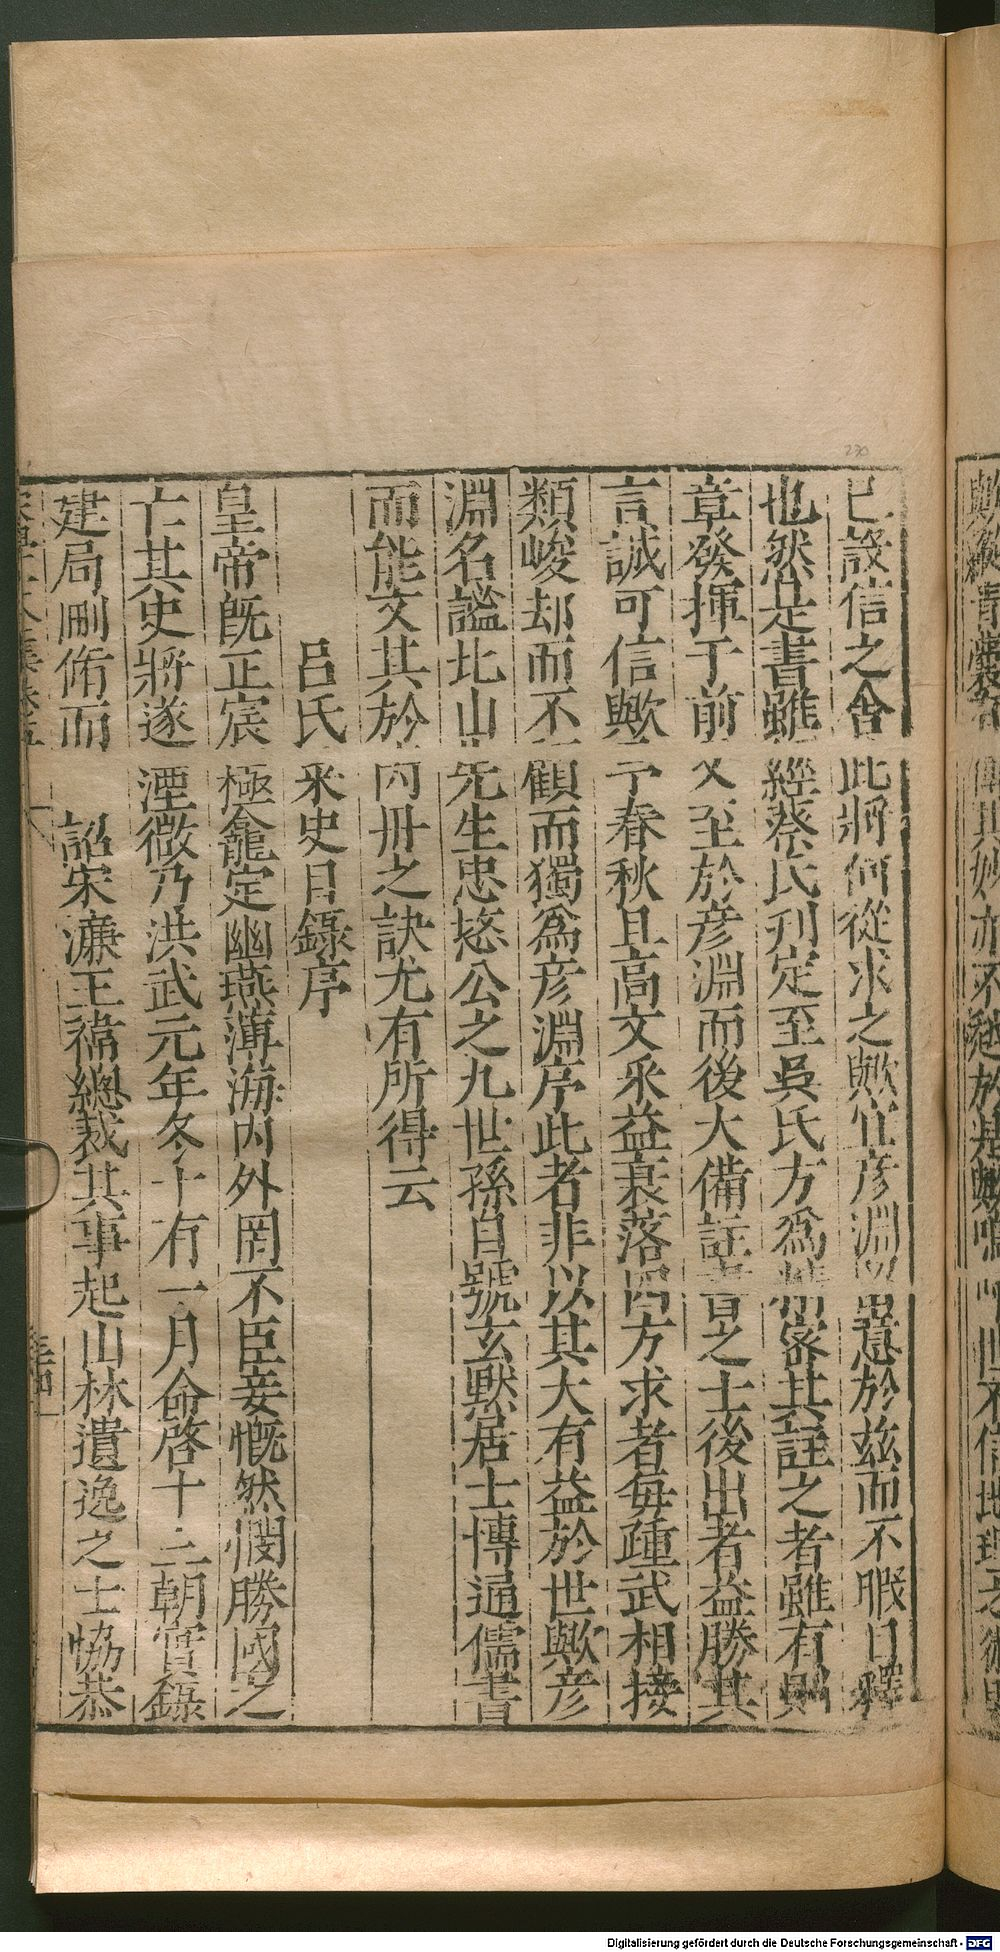 已設信之舍此將何從求之歟宜彦淵於茲而不暇日釋
也然是書雖經蔡氏刋定至吳氏方爲其註之者雖有
章發揮于前又至於彦淵而後大備註書之士後出者益勝其
言誠可信歟予春秋且高文采益衰落四方求者毎踵武相接
類峻却而不顧而獨爲彦淵序此者非以其大有益於世歟彦
淵名謐比山先生忠愍公之九世孫自號玄黙居士博通儒書
而能文其於內冊之訣尤有所得云
呂氏采史目錄序
皇帝旣正宸極龕定幽燕薄海內外罔不臣妾慨然憫勝國之
亡其史將遂湮微乃洪武元年冬十有一月命啓十三朝實錄
建局刪脩而 詔宋濂王禕緫裁其事起山林遺逸之士恊恭
230
Digitalisierung gefördert durch die Deutsche Forschungsgemeinschaft - DFG